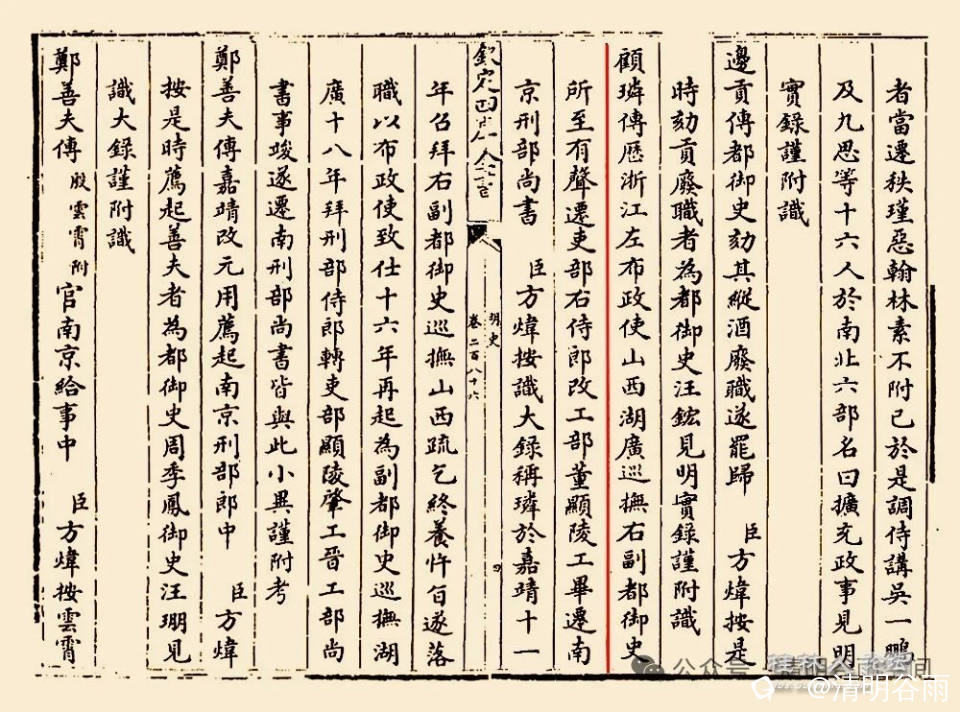 者當遷秩瑾惡翰林素不附己於是調侍講吳一鵬
及九思等十六人於南北六部名曰擴充政事見明
實錄謹附識
邊貢傳都御史劾其縱酒廢職遂罷歸 臣方煒按是
時劾貢廢職者為都御史汪鋐見明實錄謹附識
顧璘傳歷浙江左布政使山西湖廣巡撫右副都御史
所至有聲遷吏部右侍郎改工部董顯陵工畢遷南
京刑部尚書 臣方煒按識大錄稱璘於嘉靖十一
欽定四庫全書
明史
卷二百八十六
四
年召拜右副都御史巡撫山西疏乞終養忤旨遂落
職以布政使致仕十六年再起為副都御史巡撫湖
廣十八年拜刑部侍郎轉吏部顯陵肇工晉工部尚
書事竣遂遷南刑部尚書皆與此小異謹附考
鄭善夫傳嘉靖改元用薦起南京刑部郎中 臣方煒
按是時薦起善夫者為都御史周季鳳御史汪珊見
識大錄謹附識
鄭善夫傳殷雲霄附官南京給事中 臣方煒按雲霄
公众号
@清明谷雨